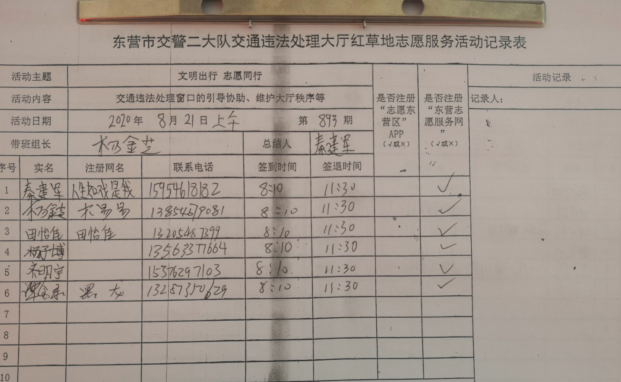 东营市交警二大队交通违法处理大厅红草地志愿服务活动记录表
活动主题 文明出行 志愿同行 活动记录
活动内容 交通违法处理窗口的引导协助、维护大厅秩序等 是否注册“志愿东营区”APP（√或×） 是否注册“东营志愿服务网”（√或×） 记录人：
活动日期 2020年 8月21日上午 第 893 期
带班组长 总结人 秦建军
序号 实名 注册网名 联系电话 签到时间 签退时间
1 秦建军 15954618182 8:10 11:30 ✓
2 13854679081 8:10 11:30 ✓
3 田怡佳 田怡佳 8:10 11:30 ✓
4 13563371664 8:10 11:30 ✓
5 15376297103 8:10 11:30 ✓
6 黑龙 13287350629 8:10 11:30 ✓
7
8
9
10